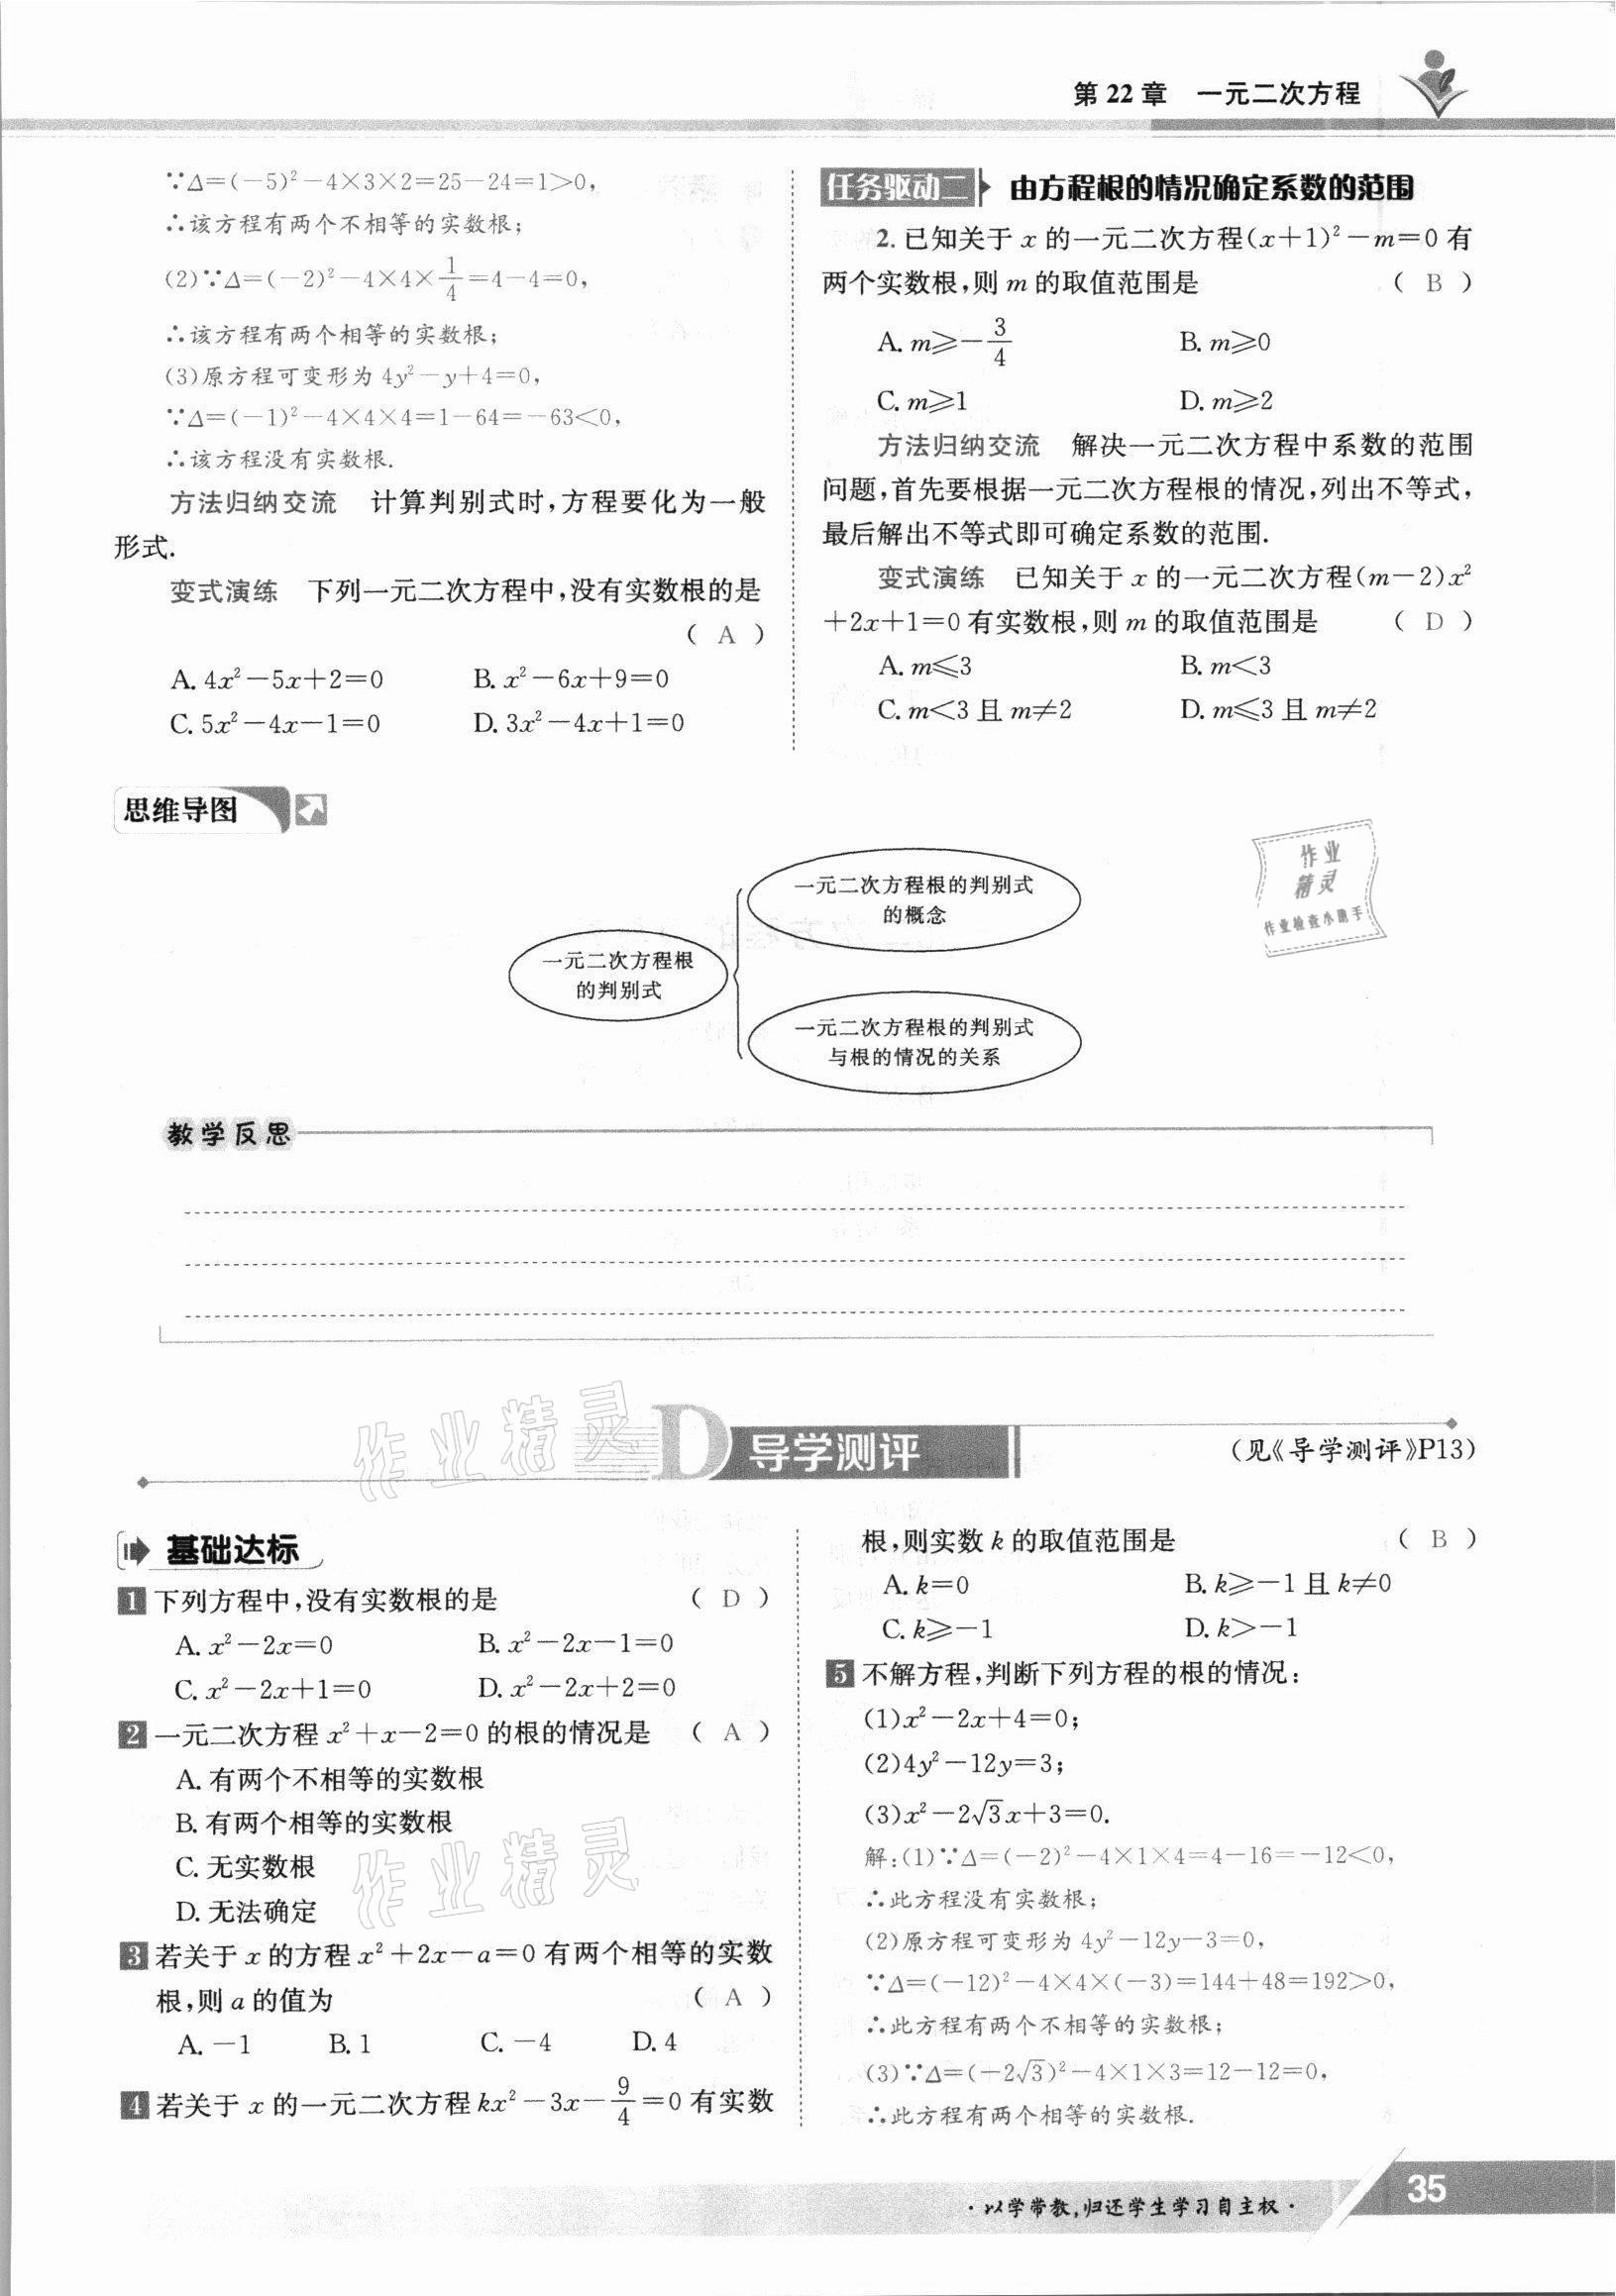 第 22 章　一元二次方程
∵Δ=(-5)²-4×3×2=25-24=1>0,
∴该方程有两个不相等的实数根;
(2)∵Δ=(-2)²-4×4×1/4=4-4=0,
∴该方程有两个相等的实数根;
(3)原方程可变形为 4y²-y+4=0,
∵Δ=(-1)²-4×4×4=1-64=-63<0,
∴该方程没有实数根.
方法归纳交流　计算判别式时,方程要化为一般
形式.
变式演练　下列一元二次方程中,没有实数根的是
( A )
A. 4x²-5x+2=0　B. x²-6x+9=0
C. 5x²-4x-1=0　D. 3x²-4x+1=0
任务驱动二　由方程根的情况确定系数的范围
2. 已知关于 x 的一元二次方程(x+1)²-m=0 有
两个实数根,则 m 的取值范围是　( B )
A. m⩾-3/4　B. m⩾0
C. m⩾1　D. m⩾2
方法归纳交流　解决一元二次方程中系数的范围
问题,首先要根据一元二次方程根的情况,列出不等式,
最后解出不等式即可确定系数的范围.
变式演练　已知关于 x 的一元二次方程(m-2)x²
+2x+1=0 有实数根,则 m 的取值范围是　( D )
A. m⩽3　B. m<3
C. m<3 且 m≠2　D. m⩽3 且 m≠2
思维导图
一元二次方程根的判别式
的概念
一元二次方程根
的判别式
一元二次方程根的判别式
与根的情况的关系
作业
精灵
作业检查小助手
教学反思
作业精灵
D 导学测评
(见《导学测评》P13)
基础达标
1 下列方程中,没有实数根的是　( D )
A. x²-2x=0　B. x²-2x-1=0
C. x²-2x+1=0　D. x²-2x+2=0
2 一元二次方程 x²+x-2=0 的根的情况是　( A )
A. 有两个不相等的实数根
B. 有两个相等的实数根
C. 无实数根
D. 无法确定
作业精灵
3 若关于 x 的方程 x²+2x-a=0 有两个相等的实数
根,则 a 的值为　( A )
A. -1　B. 1　C. -4　D. 4
4 若关于 x 的一元二次方程 kx²-3x-9/4=0 有实数
根,则实数 k 的取值范围是　( B )
A. k=0　B. k⩾-1 且 k≠0
C. k⩾-1　D. k>-1
5 不解方程,判断下列方程的根的情况:
(1)x²-2x+4=0;
(2)4y²-12y=3;
(3)x²-2√3x+3=0.
解:(1)∵Δ=(-2)²-4×1×4=4-16=-12<0,
∴此方程没有实数根;
(2)原方程可变形为 4y²-12y-3=0,
∵Δ=(-12)²-4×4×(-3)=144+48=192>0,
∴此方程有两个不相等的实数根;
(3)∵Δ=(-2√3)²-4×1×3=12-12=0,
∴此方程有两个相等的实数根.
·以学带教,归还学生学习自主权·
35